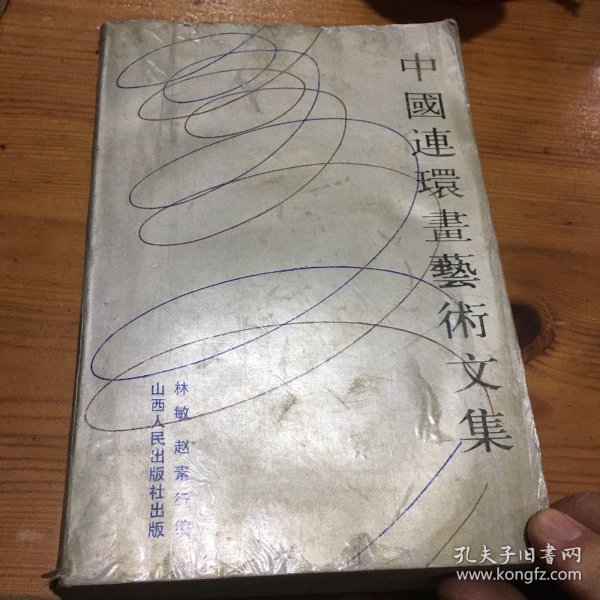 中國連環畫藝術文集
林敏 赵素行 编
山西人民出版社出版
孔夫子旧书网
www.kongfz.com